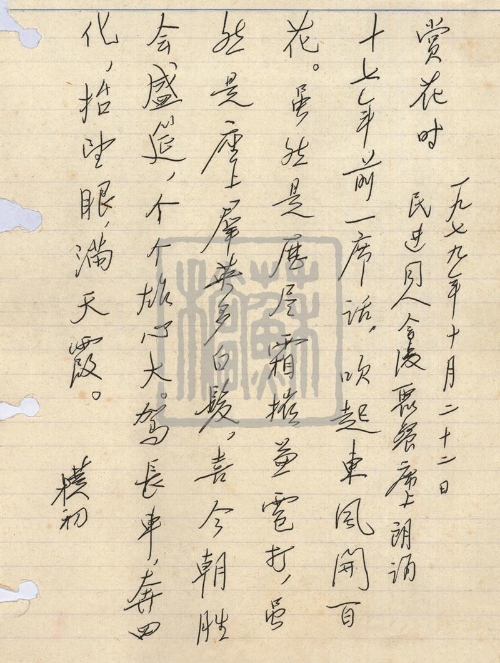 赏花时
一九七九年十月二十二日
民进同人会後聚餐席上朗诵
十七年前一席话，吹起東风開百
花。虽然是历尽霜摧兼雹打，虽
然是座上羣英多白髮，喜今朝胜
会盛筵，个个雄心大。驾長車，奔四
化，抬望眼，满天霞。
樸初